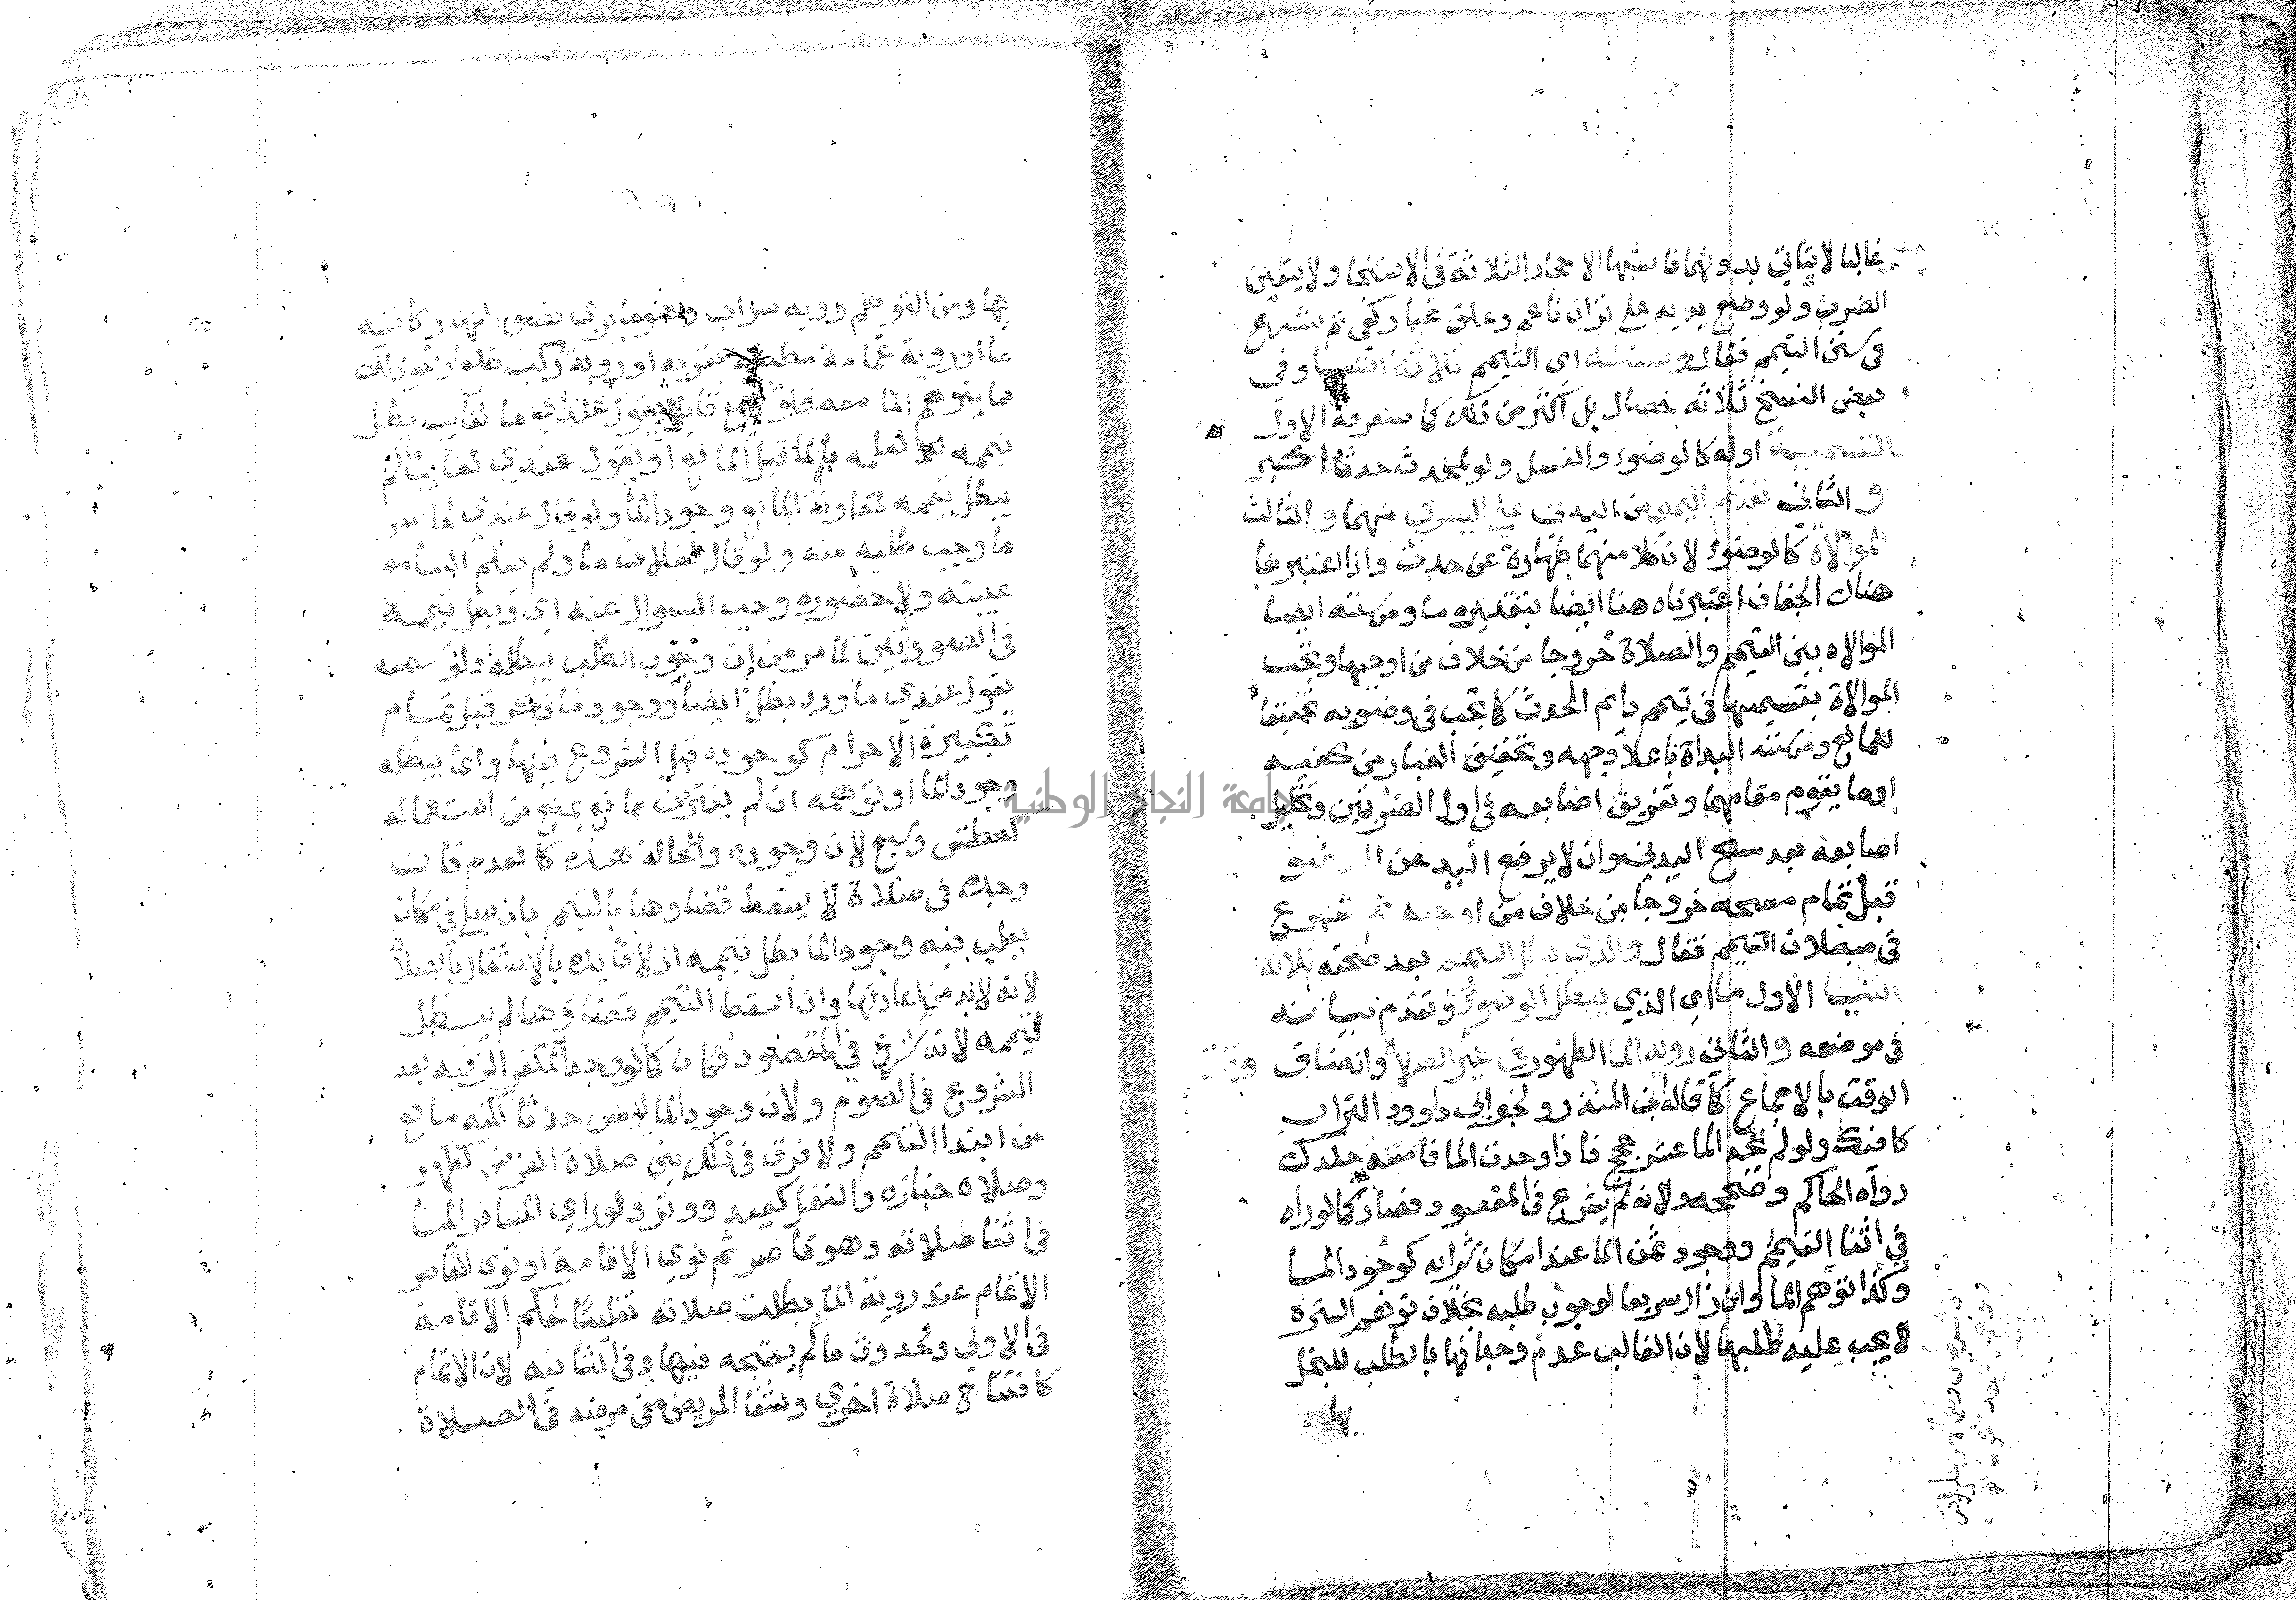 غالبا لا يتاتي بدونهما فاشبها الاحجار الثلاثة في الاستنجا ولا يتعين
الضرب ولو وضع يديه علي تراب ناعم وعلق غبار كفي ثم شرع
في سنن التيمم فقال وسننه اى التيمم ثلاثة اشيا وفي
بعض النسخ ثلاثه خصال بل اكثر من ذلك كما ستعرفه الاول
التسمية اوله كالوضوء والغسل ولو لمحدث حدثا اكبر
و الثاني تقديم اليمنى من اليدين علي اليسري منهما و الثالث
الموالاة كالوضوء لان كلا منهما طهارة عن حدث واذا اعتبرنا
هناك الجفاف اعتبرناه هنا ايضا بتقديره ما ومن سننه ايضا
الموالاه بين التيمم والصلاة خروجا من خلاف من اوجبها وتجب
الموالاة بقسميها في تيمم دايم الحدث كما تجب في وضويه تخفيفا
للمانع ومن سننه البداة باعلا وجهه وتخفيف الغبار من كفيه
او ما يقوم مقامهما وتفريق اصابعه في اول الضربتين وتخليل
اصابعه بعد مسح اليدين وان لا يرفع اليد عن العضو
قبل تمام مسحه خروجا من خلاف من اوجبه ثم شرع
في مبطلات التيمم فقال والذي يبطل التيمم بعد صحته ثلاثة
اشيا الاول ما اي الذي يبطل الوضوء وتقدم بيانه
في موضعه و الثاني رويه الما الطهور في غير الصلاة وان ضاق
الوقت بالاجماع كما قاله ابن المنذر ولخبر ابي داوود التراب
كافيك ولو لم تجد الما عشر حجج فاذا وجدت الما فامسه جلدك
رواه الحاكم وصححه ولانه لم يشرع في المقصود فصار كما لو راه
في اثنا التيمم ووجود ثمن الما عند امكان شرايه كوجود الما
وكذا توهم الما وان زال سريعا لوجوب طلبه بخلاف توهم السترة
لا يجب عليه طلبها لان الغالب عدم وجدانها بالطلب للبخل
بها
بها ومن التوهم رويه سراب وهو ما يري نصف النهار كانه
ما او روية غمامة مطبقة بقربه او روية ركب طلع او نحو ذلك
مما يتوهم الما معه فلو سمع قايلا يقول عندي ما لغايب بطل
تيممه لعلمه بالما قبل المانع او يقول عندي لغايب ما لم
يبطل تيممه لمقارنة المانع وجود الما ولو قال عندي لحاضر
ما وجب طلبه منه ولو قال لفلان ما ولم يعلم السامع
غيبته ولا حضوره وجب السوال عنه اي وبطل تيممه
في الصورتين لما مر من ان وجوب الطلب يبطله ولو سمعه
يقول عندي ما ورد بطل ايضا ووجود ما ذكر قبل تمام
تكبيرة الاحرام كوجوده قبل الشروع فيها وانما يبطله
وجود الما او توهمه ان لم يقترن مانع يمنع من استعماله
كعطش وسبع لان وجوده والحالة هذه كالعدم فان
وجده في صلاة لا يسقط قضاوها بالتيمم بان صلي في مكان
يغلب فيه وجود الما بطل تيممه اذ لا فايده بالاشتغال بالصلاة
لانه لابد من اعادتها وان اسقط التيمم قضاوها لم يبطل
تيممه لانه شرع في المقصود فكان كما لو وجد المكفر الرقبه بعد
الشروع في الصوم ولان وجود الما ليس حدثا لكنه مانع
من ابتدا التيمم ولا فرق في ذلك بين صلاة الفرض كظهر
وصلاه جنازه والنفل كعيد ووتر ولو راي المسافر الما
في اثنا صلاته وهو قاصر ثم نوي الاقامة او نوى القاصر
الاتمام عند روية الما بطلت صلاته تغليبا لحكم الاقامة
في الاولي ولحدوث ما لم يفتتحه فيها وفي الثانيه لان الاتمام
كافتتاح صلاة اخري وشفا المريض من مرضه في الصلاة
جامعة النجاح الوطنية